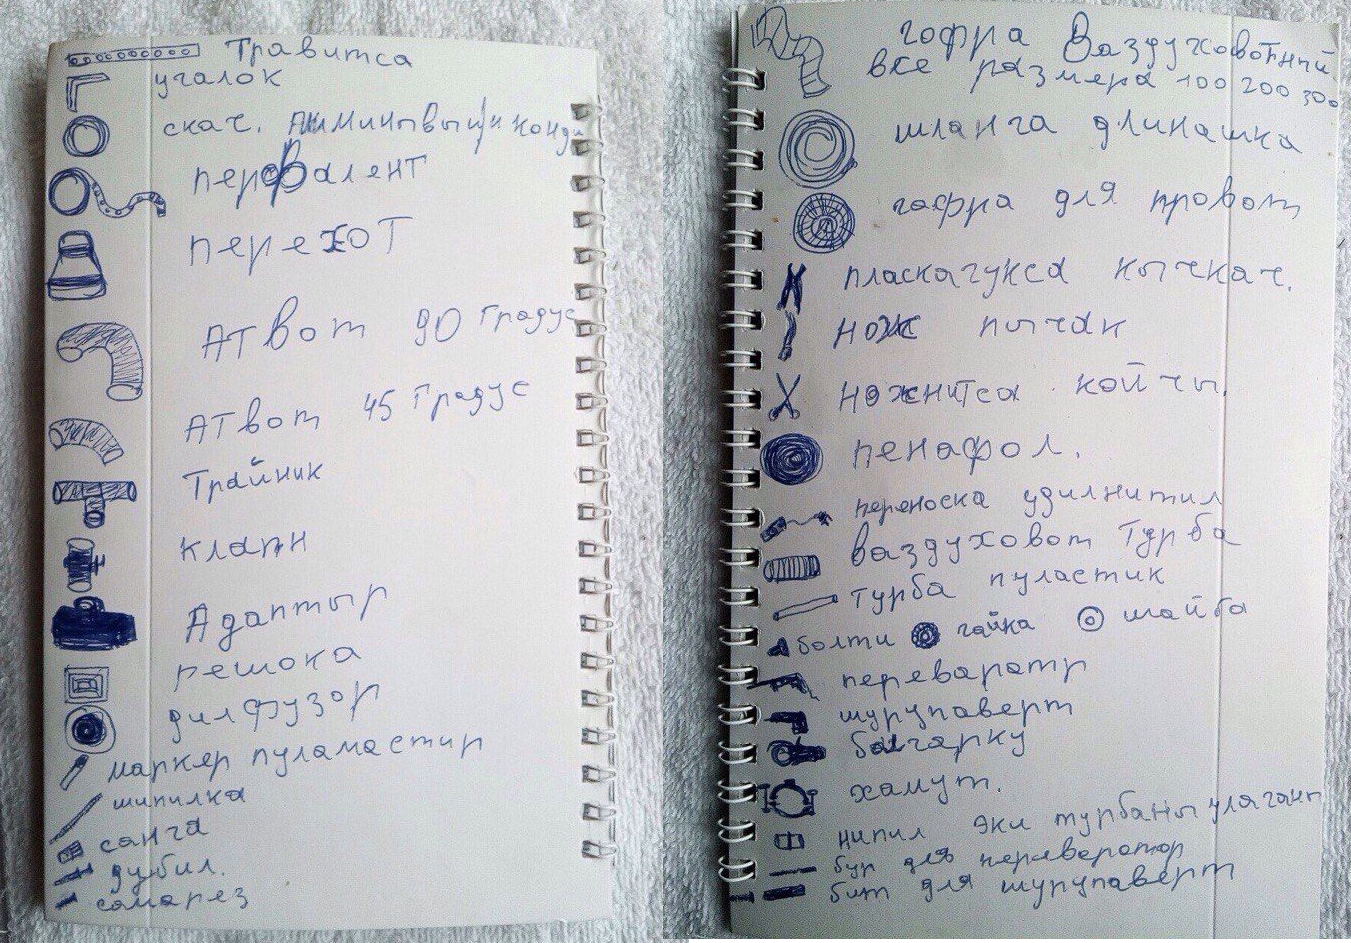 Травитса
угалок
скач. Алминывый и конди
перфалент
перехот
АТвот 90 градус
АТвот 45 градус
Трайник
клапн
Адаптыр
решока
дилфузор
маркер пуламастир
шпилка
санга
дубил.
саморез
гофра Ваздуховотный
все размера 100 200 300
шланга длинашка
гафра для провот
пласкагукса кычкач.
нож пычак
ножнитса койчы.
пенафол.
переноска удилнитил
ваздуховот Турба
турба пуластик
болти гайка шайба
переваратр
шурупаверт
балгарку
хамут.
нипил эки турбаны улаганы
бур для переваратор
бит для шурупаверт